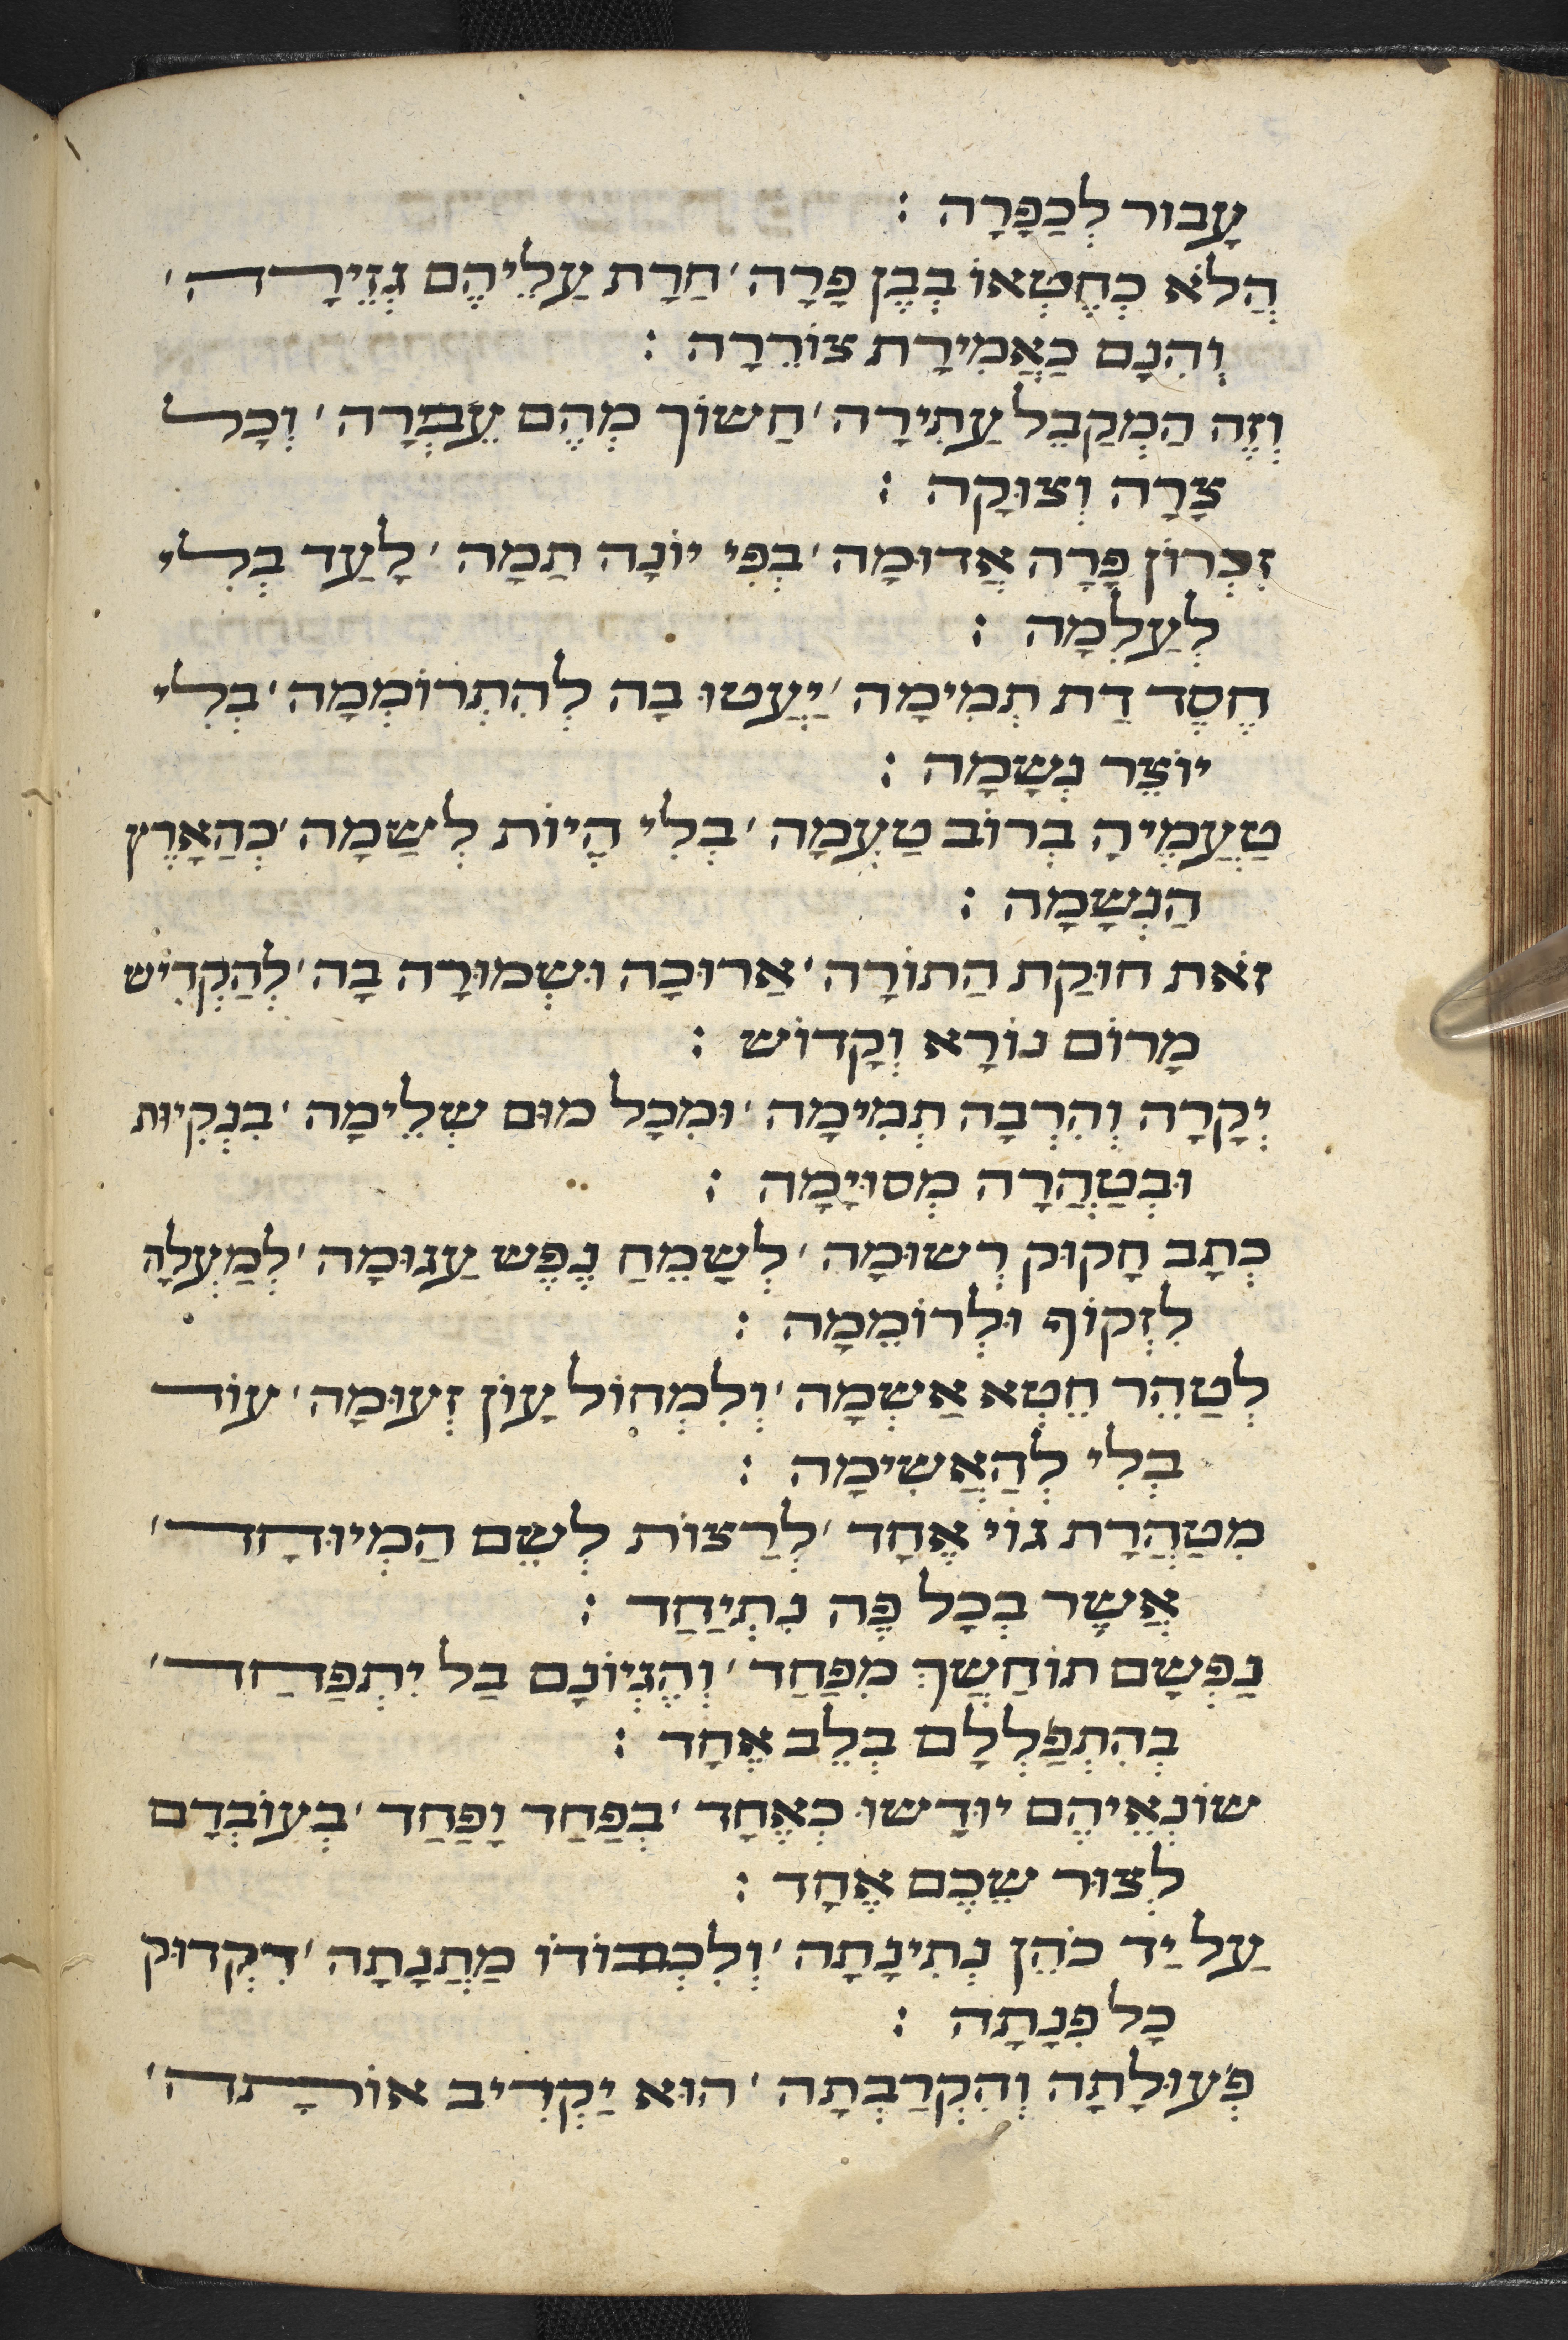 עָבוּר לְכַפָּרָה :
הֲלֹא כְּחֶטְאוֹ בְּבֶן פָּרָה ׳ חַרַת עַלֵיהֶם גְזֵירָה ׳
וְהִנָם כַאֲמִירָת צוֹרֵרָה :
וְזֶה הַמְקַבֵל עַתִירָה ׳ חַשוֹך מְהֶם עֶבְרָה ׳ וְכָל
צָרָה וְצוּקָה :
זִכְרוֹן פָּרָה אֲדוּמָה ׳ בְּפִי יוֹנָה תַמָה ׳ לָעַד בְלִי
לְעַלְמָה :
חֶסֶד דַת תְמִימָה ׳ יַעֲטוּ בָה לְהִתְרוֹמְמָה ׳ בְלִי
יוֹצֵר נְשָמָה :
טַעֲמֶיהָ בְּרוֹב טַעְמָה ׳ בְלִי הֱיוֹת לְשַמָה ׳ כְהַאָרֶץ
הַנְשָמָה :
זֹאת חוּקַת הַתוֹרָה ׳ אַרוּכָה וּשְמוּרָה בָה ׳ לְהַקְדִיש
מָרוֹם נוֹרָא וְקָדוֹש :
יְקָרָה וְהִרְבָה תְמִימָה ׳ וּמִכָל מוּם שְלֵימָה ׳ בִנְקִיוּת
וּבְטַהֲרָה מְסוּיָמָה :
כְתָב חָקוּק רְשוּמָה ׳ לְשָמֵחַ נֶפֶש עַגוּמָה ׳ לְמַעְלָה
לִזְקוֹף וּלְרוֹמֵמָה :
לְטַהֵר חֵטְא אַשְמָה ׳ וְלִמְחוֹל עָוֹן זְעוּמָה ׳ עוֹד
בְלִי לְהַאֲשִימָה :
מִטַהֲרָת גוֹי אֶחָד ׳ לְרַצוֹת לְשֵם הַמְיוּחָד ׳
אֲשֶר בְכָל פֶה נִתְיַחַד :
נַפְשָם תוֹחַשֵךְ מִפַּחַד ׳ וְהֶגְיוֹנָם בַל יִתְפַּחַד ׳
בְהִתְפַלְלָם בְלֵב אֶחָד :
שוֹנְאֵיהֶם יוּדָשוּ כְאֶחָד ׳ בְפַחַד וָפַחַד ׳ בְעוֹבְדָם
לְצוּר שֵכֶם אֶחָד :
עַל יַד כֹהֵן נְתִינָתָה ׳ וְלִכְבוֹדוֹ מַתֲנָתָה ׳ דִקְדוּק
כָל פִנָתָה :
פְעוּלָתָה וְהִקְרַבְתָה ׳ הוּא יַקְרִיב אוֹתָה ׳